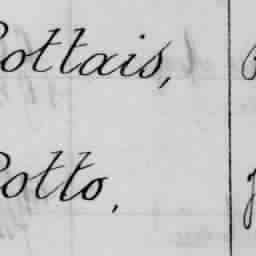 ottais,
otto,